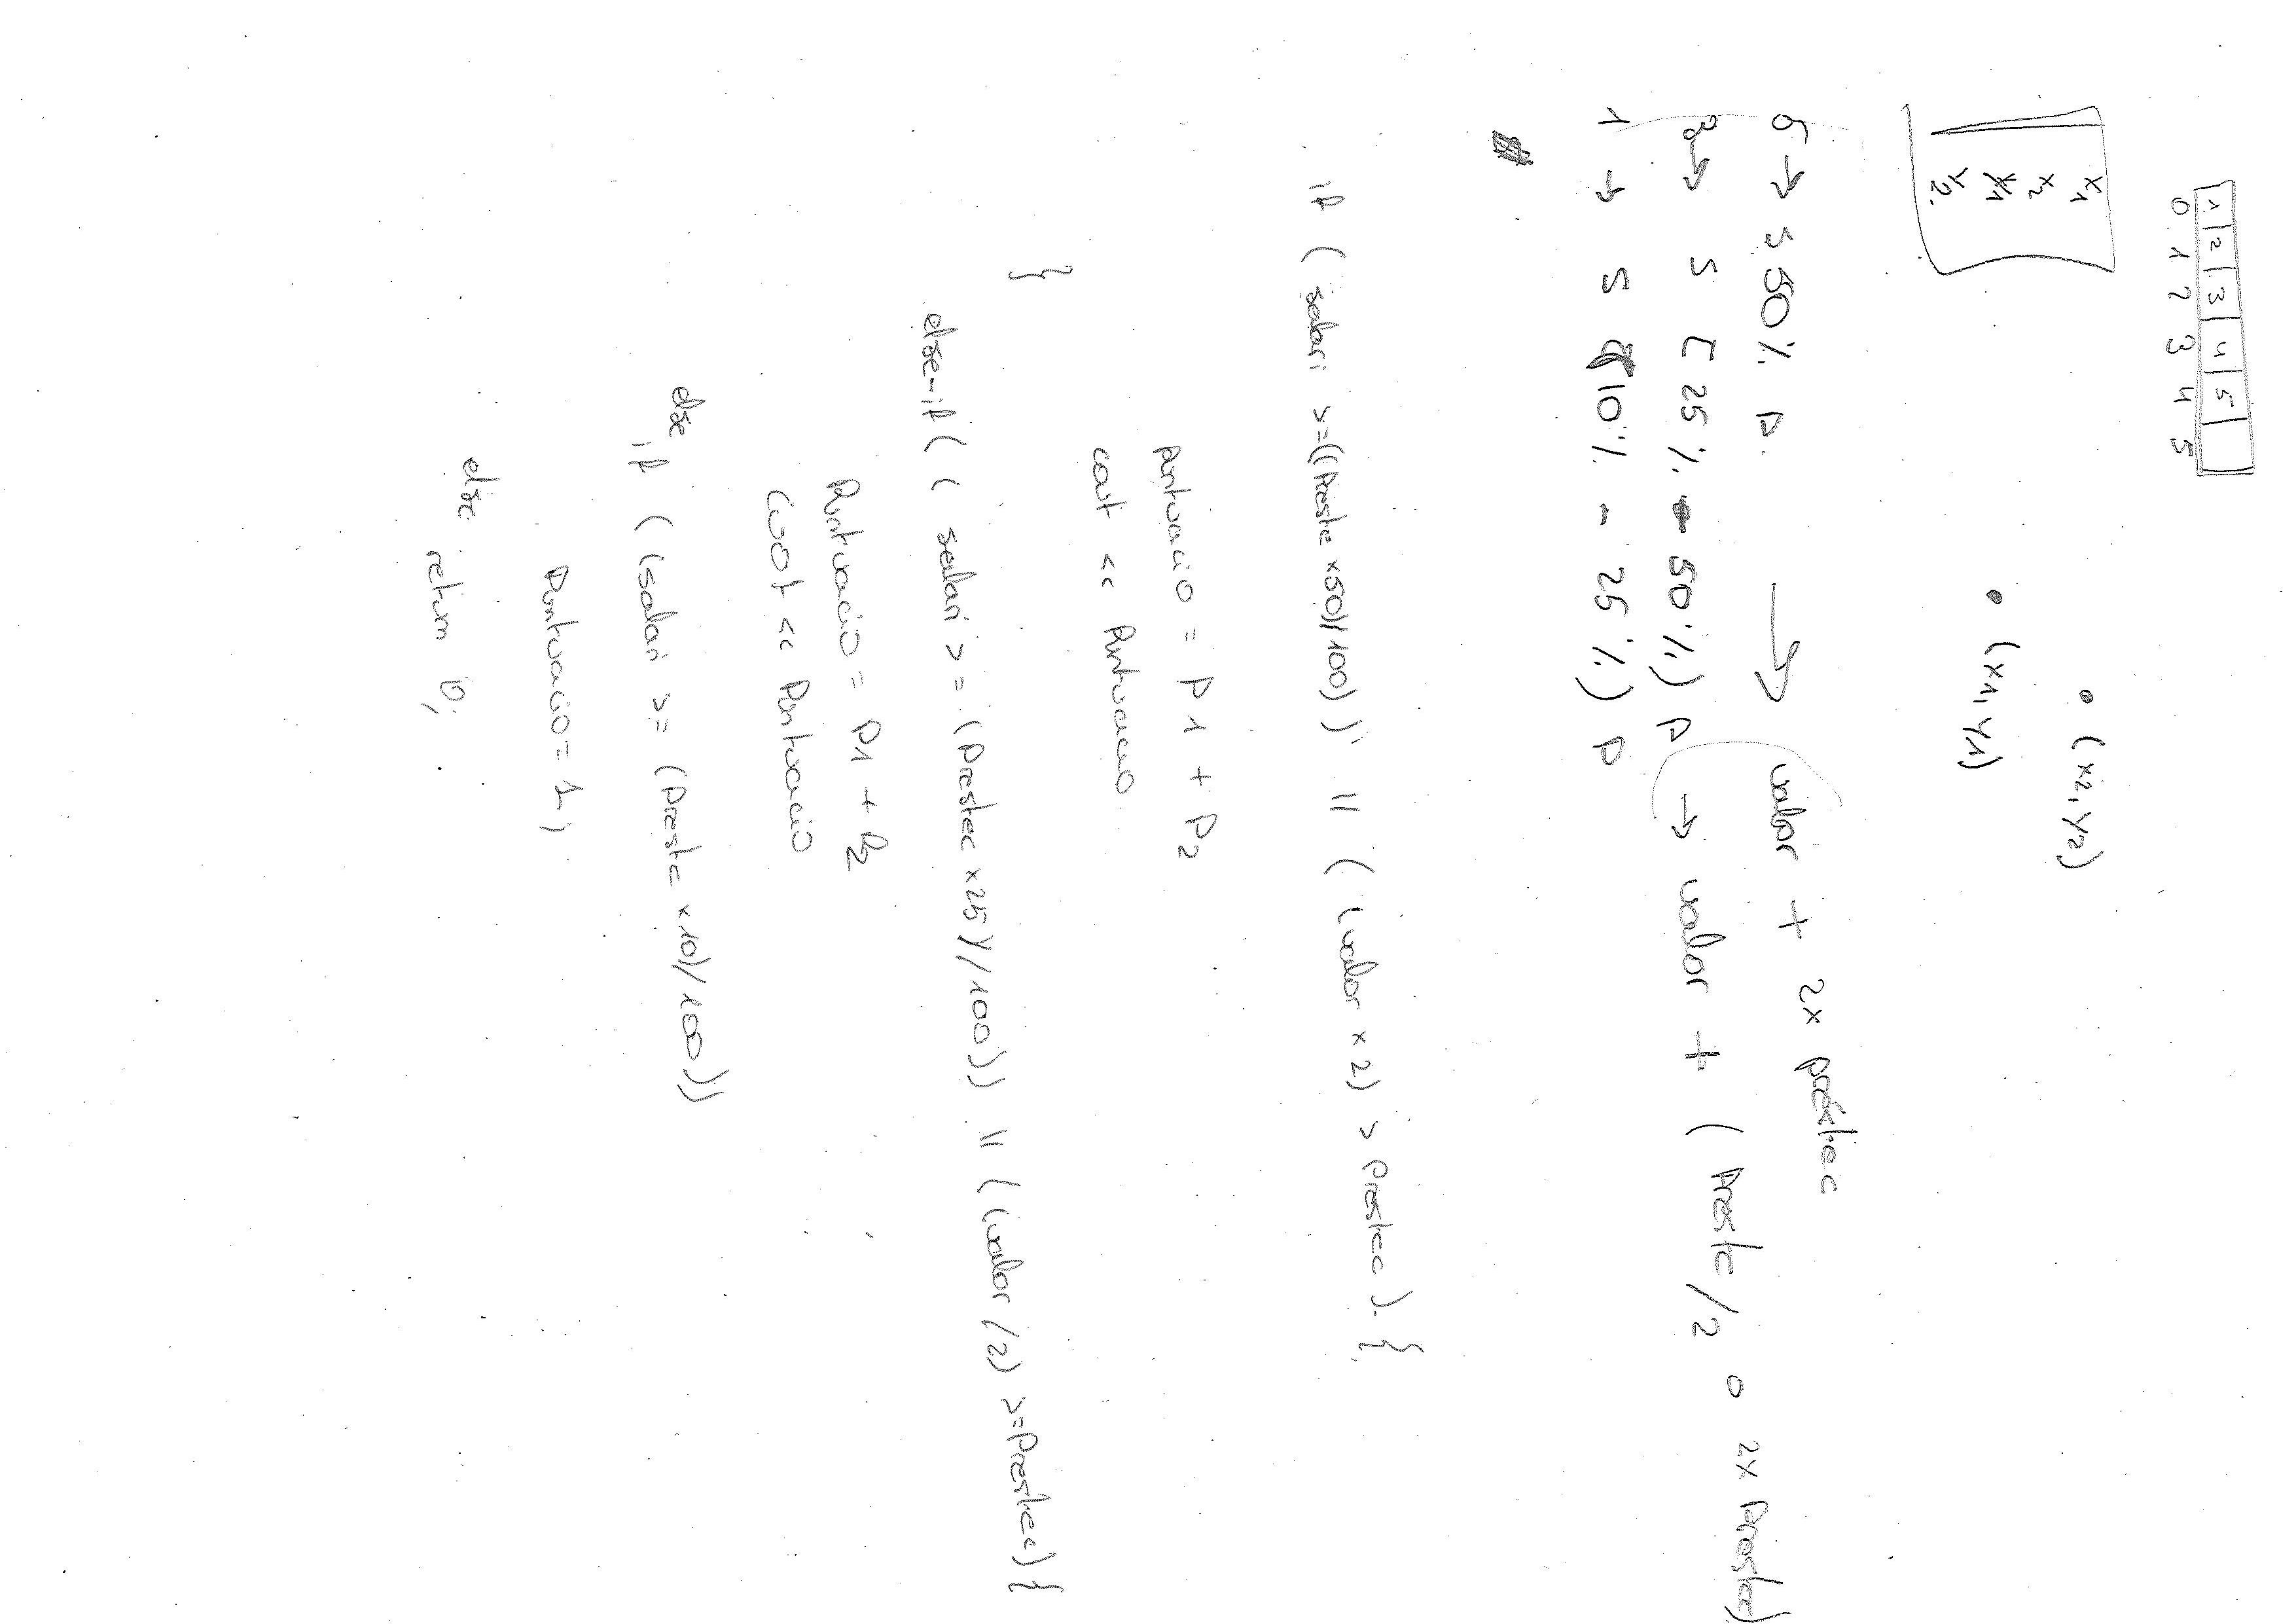 1 2 3 4 5
0 1 2 3 4 5
x1
x2
y1
y2.
• (x2, y2)
• (x1, y1)
5 → S 50% P. → valor + 2x préstec
3 → S [25% - 50%) P → valor + (Prestec/2 o 2x Prestec)
1 → S [10% - 25%) P
if ( salari >=((Prestec x50)/100)) || ( (valor x 2) > Prestec). {
puntuacio = P1 + P2
cout << Puntuacio.
}
else-if ( ( salari >= (Prestec x25)/100)) || ((valor/2) >=Prestec) {
Puntuacio = P1 + P2
cout << Puntuacio
else if ( (salari >= (Prestec x10)/100))
Puntuacio=1;
else
return 0;